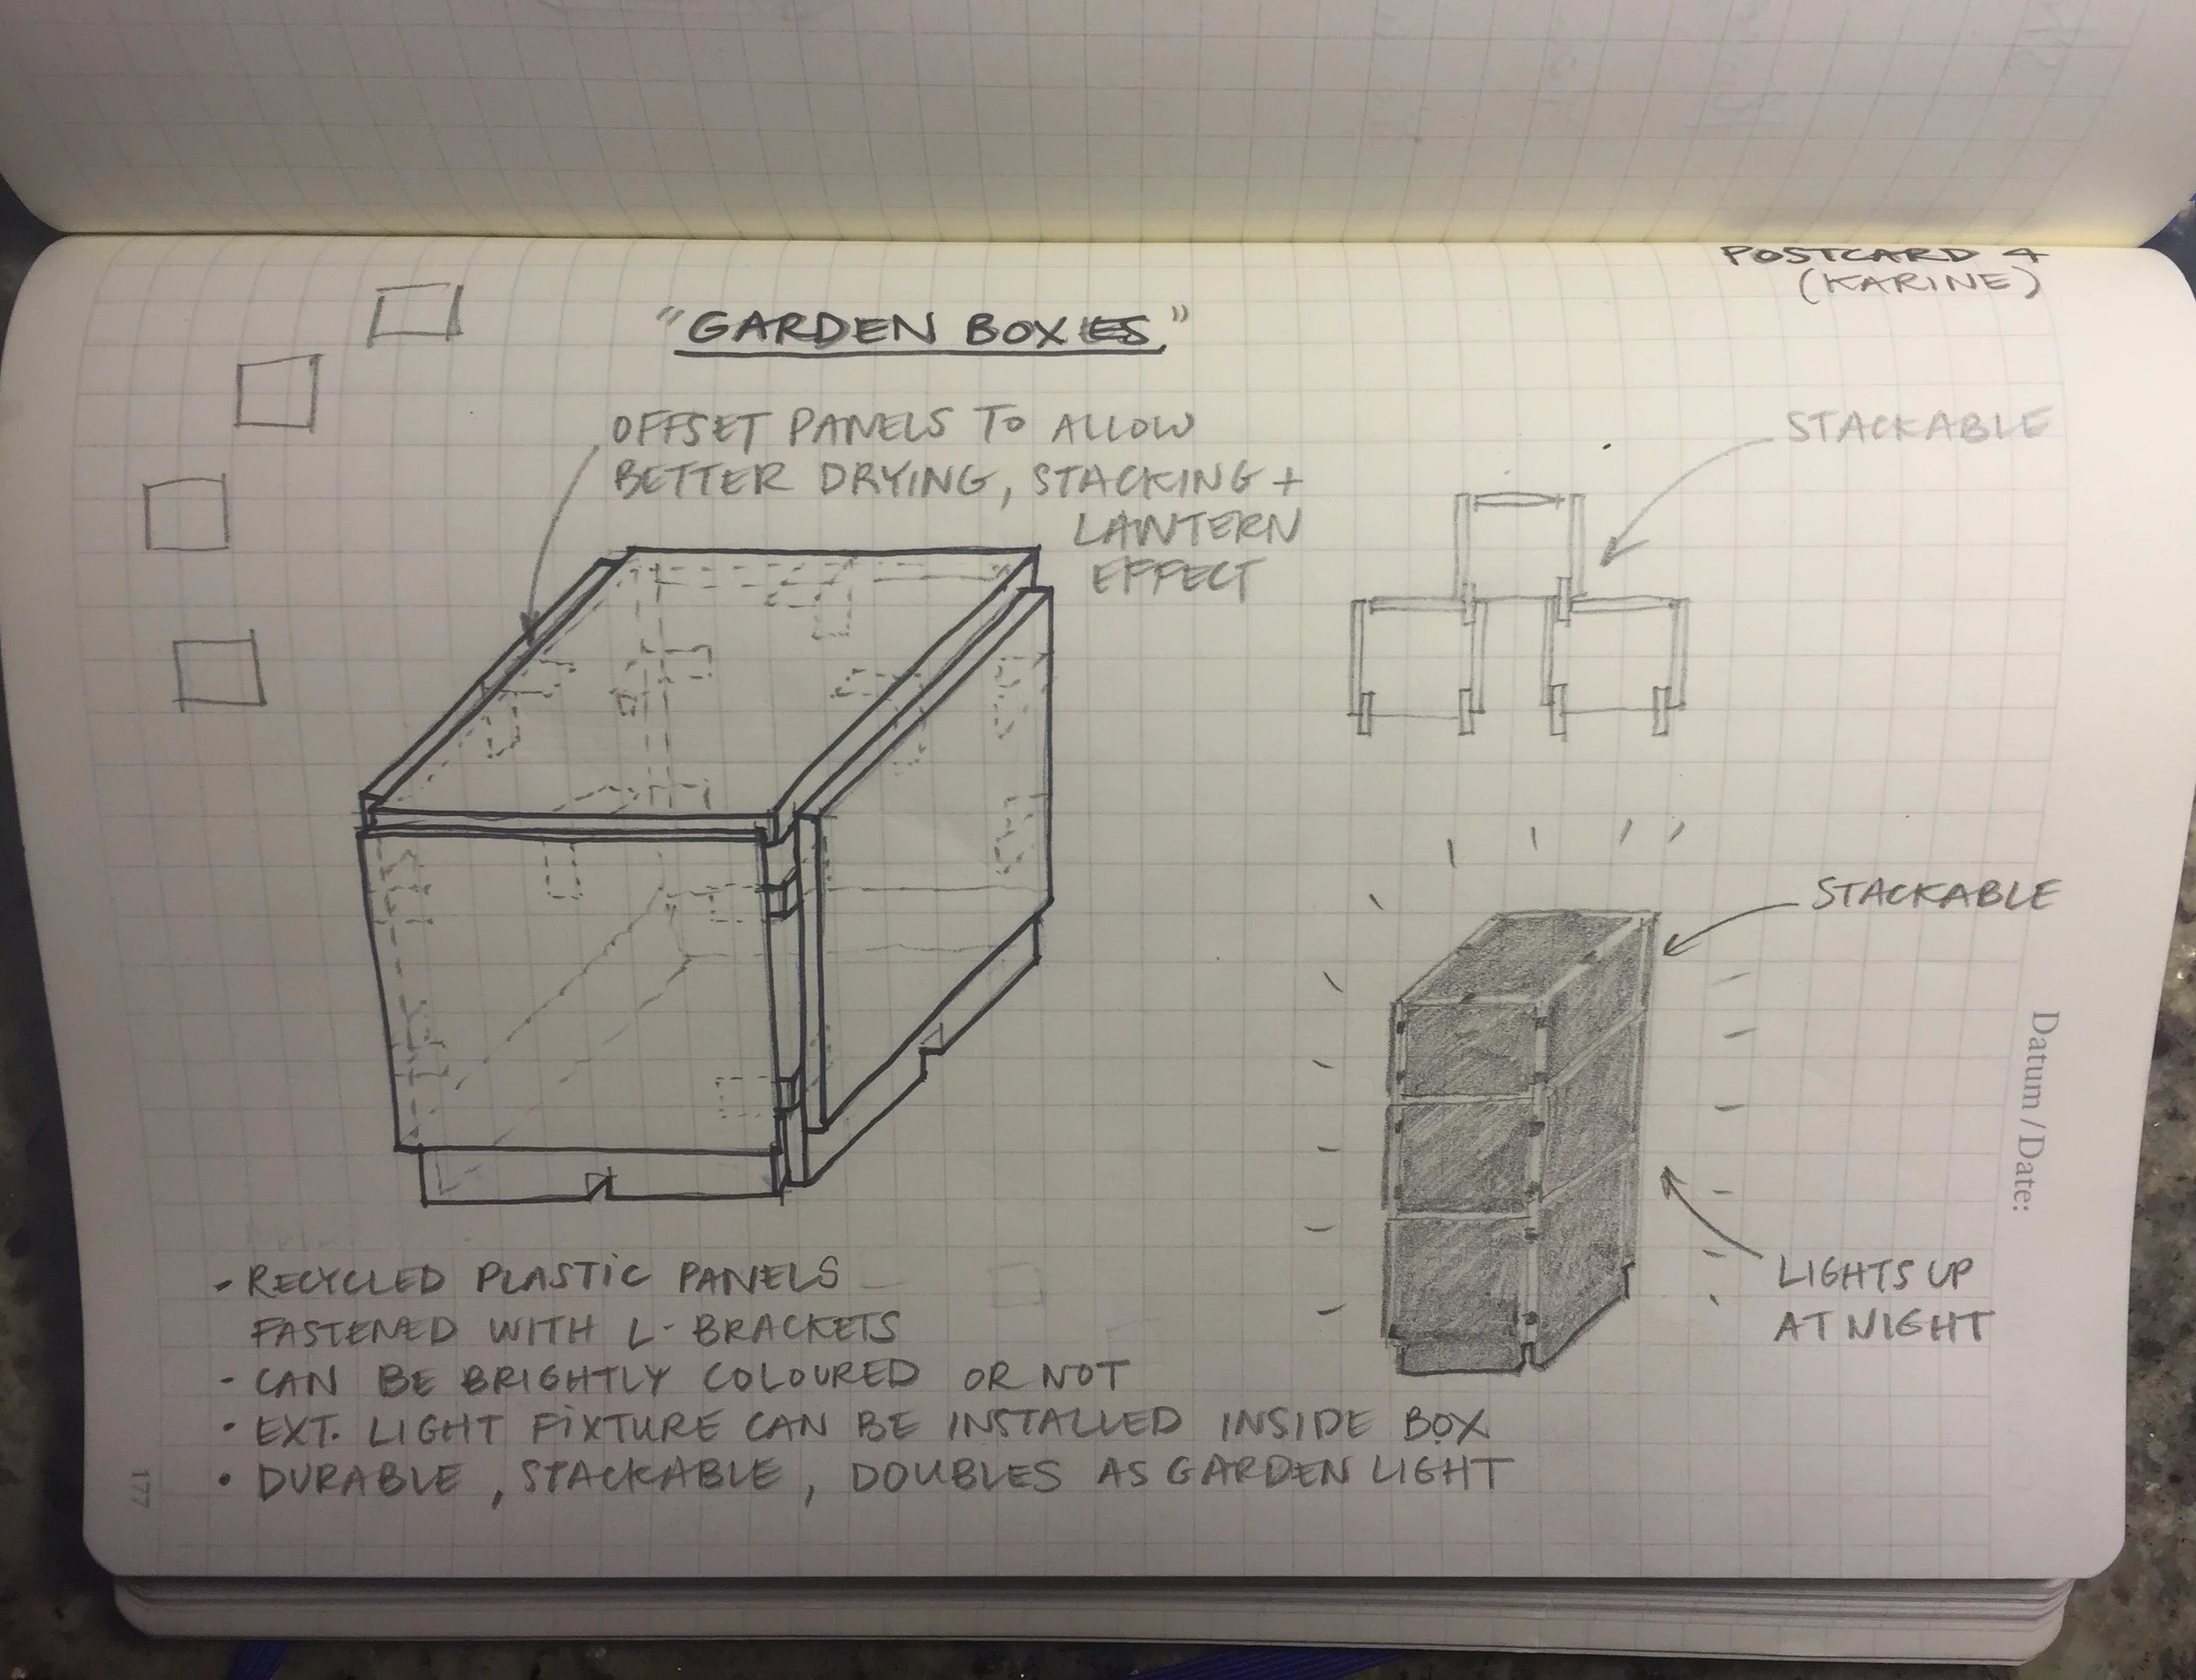 POSTCARD 4
(KARINE)
"GARDEN BOXES"
OFFSET PANELS TO ALLOW
BETTER DRYING, STACKING +
LANTERN
EFFECT
STACKABLE
STACKABLE
LIGHTS UP
AT NIGHT
Datum / Date:
- RECYCLED PLASTIC PANELS
FASTENED WITH L-BRACKETS
- CAN BE BRIGHTLY COLOURED OR NOT
• EXT. LIGHT FIXTURE CAN BE INSTALLED INSIDE BOX
• DURABLE, STACKABLE, DOUBLES AS GARDEN LIGHT
177